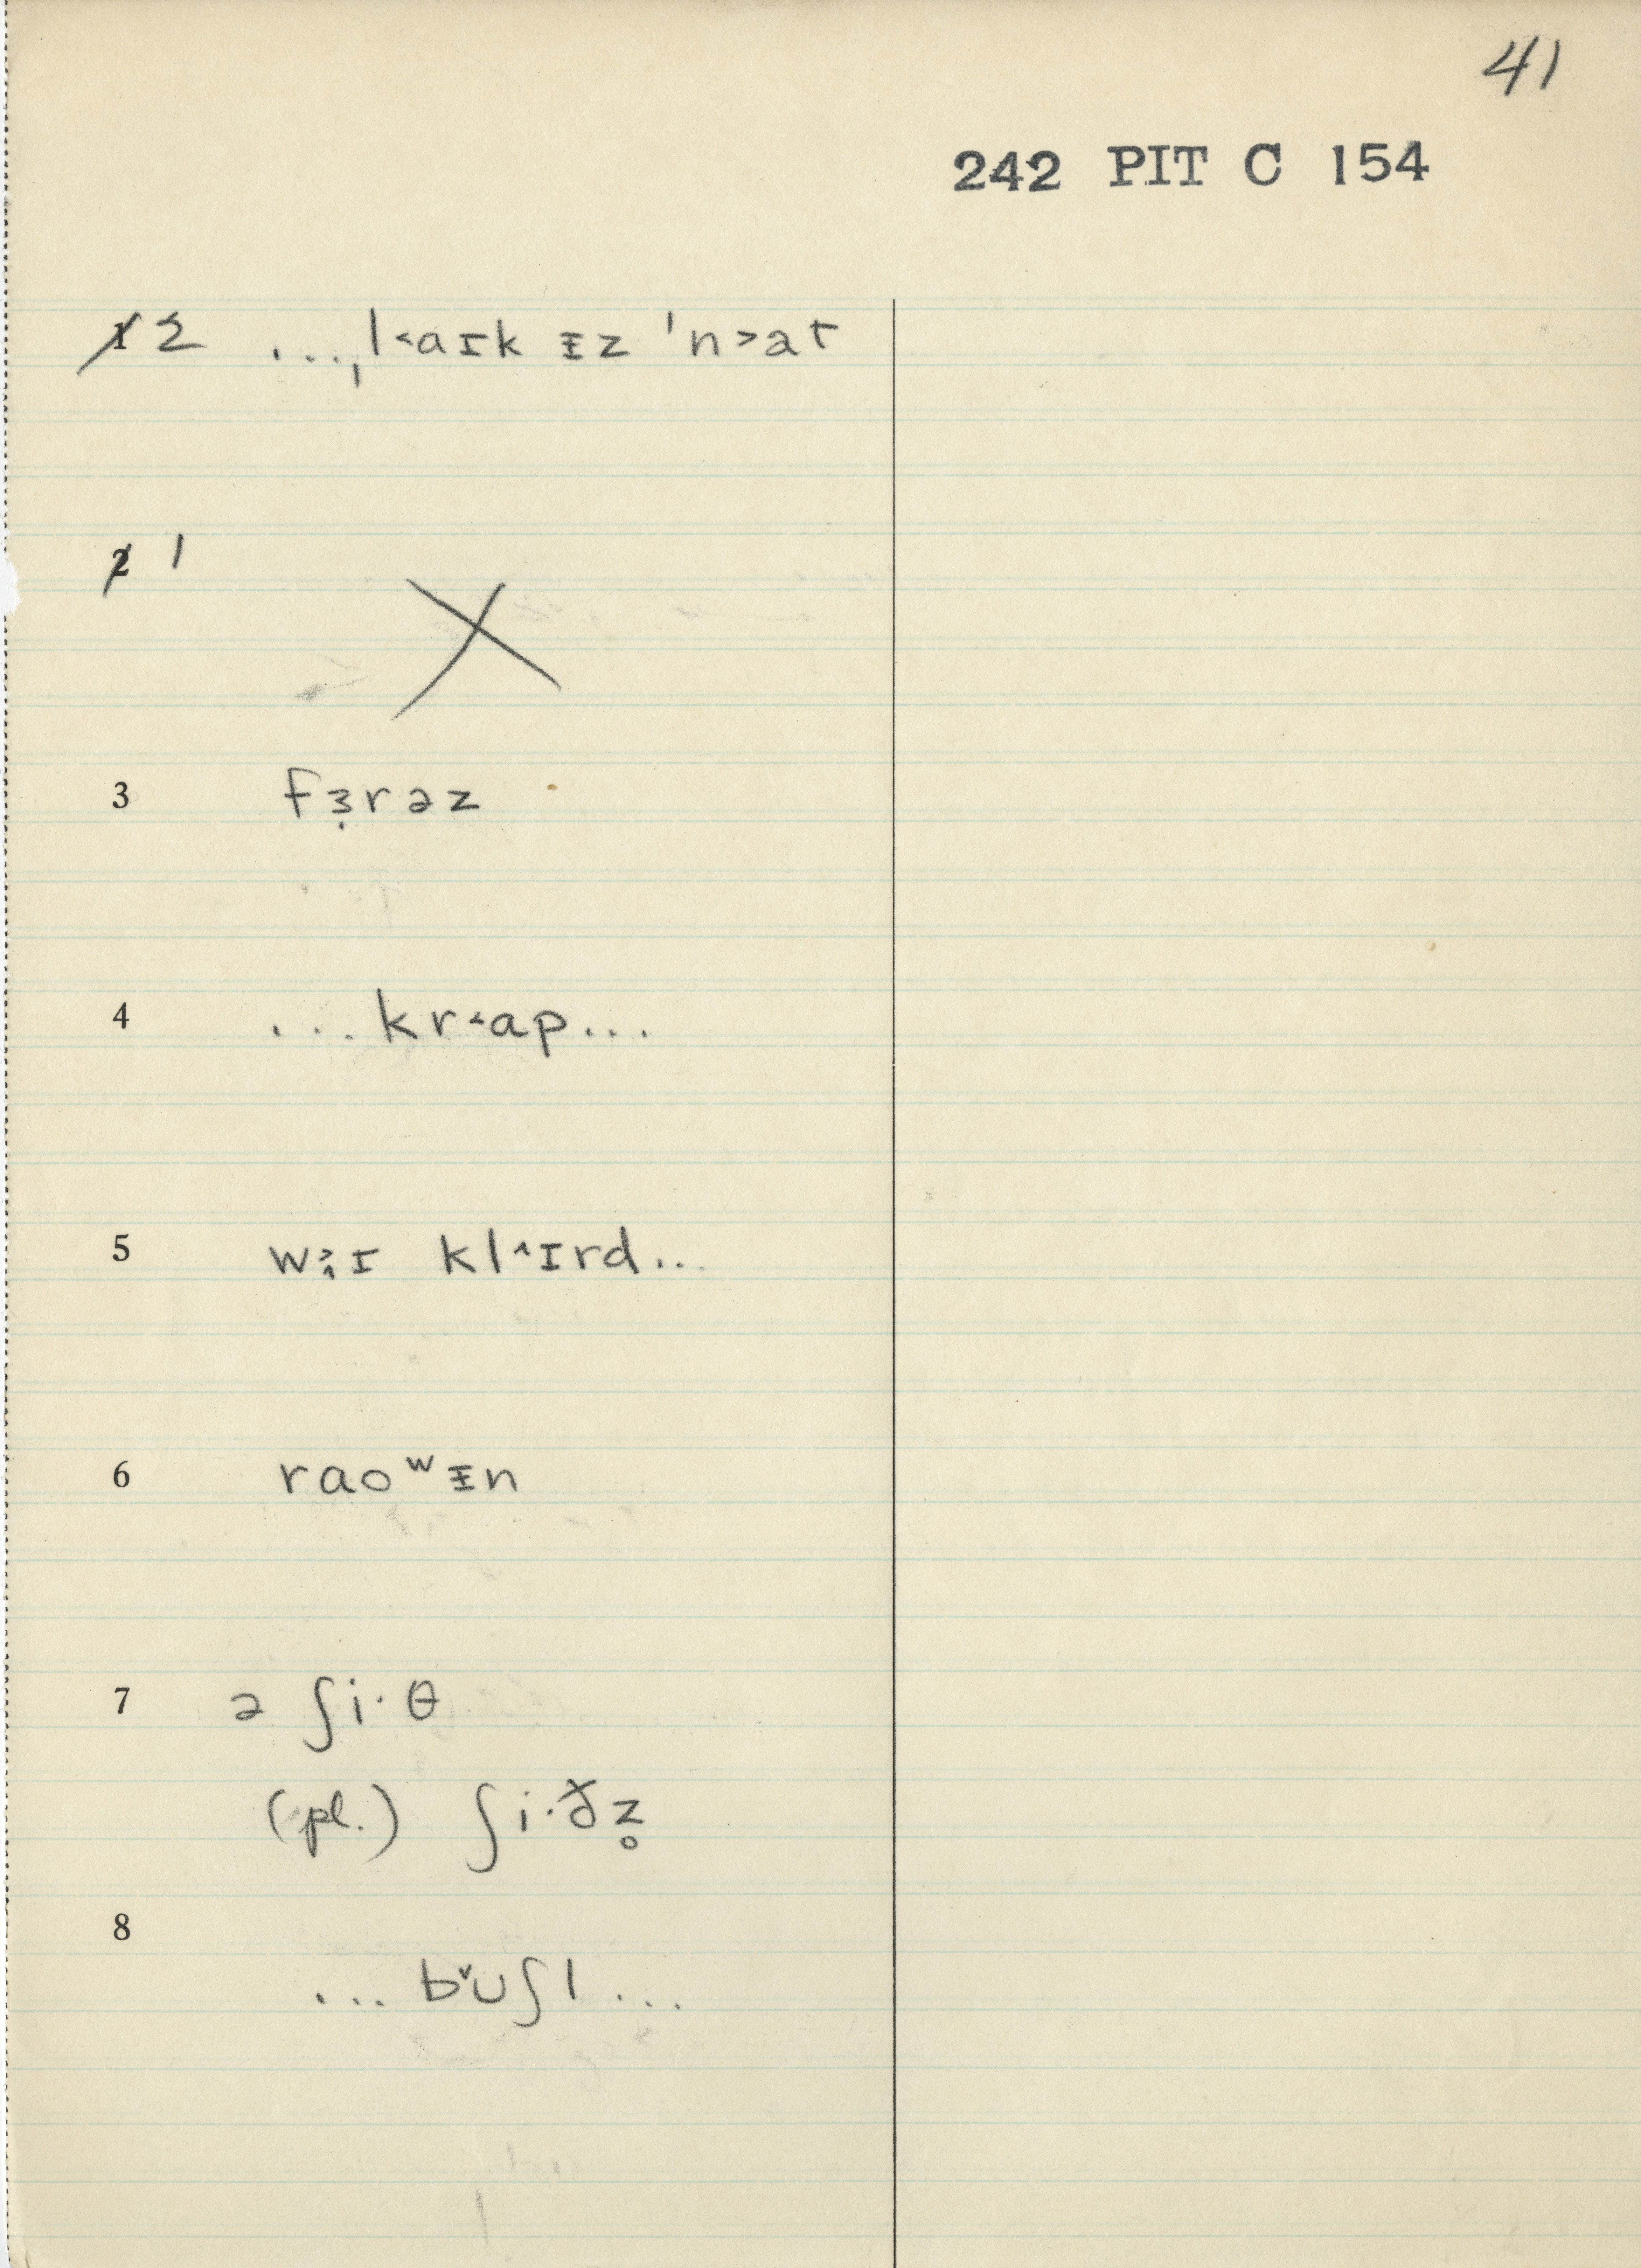 41
242 PIT C 154
1 2 ...ˌl˂aɪk ᵻz ˈn˃at
2 1
3 fɜ̣rəz
4 ...kr˂ap...
5 wɜɪ klˆɪrd...
6 raoʷᵻn
7 ə ʃi·θ
(pl.) ʃi·ðz̥
8 ...bˇʊʃl...